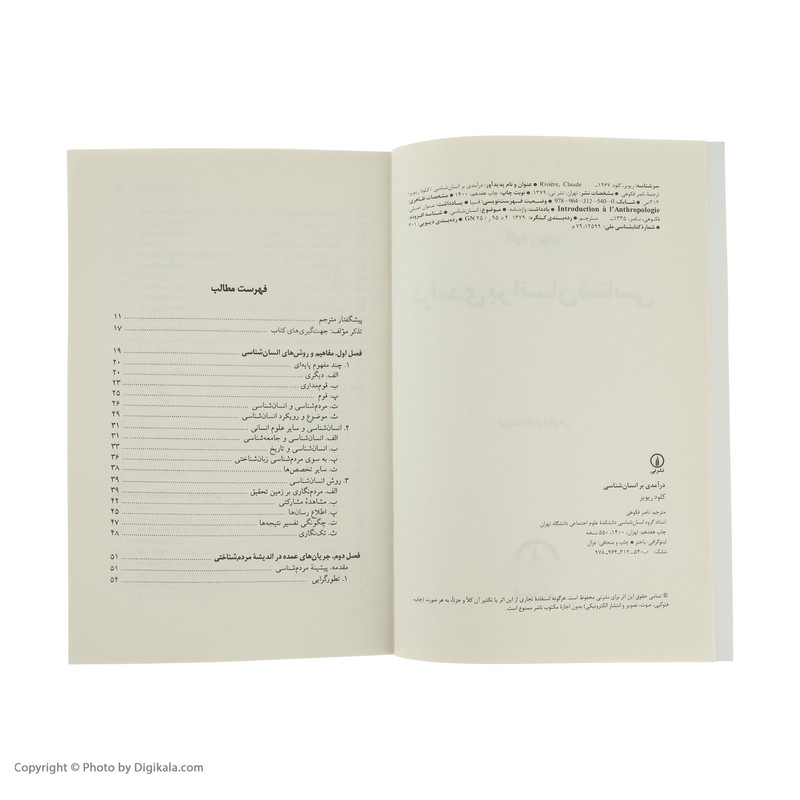 سرشناسه: ریویر، کلود، ۱۹۶۷ـ Rivière, Claude ● عنوان و نام پدیدآور: درآمدی بر انسان‌شناسی / کلود ریویر؛
ترجمهٔ ناصر فکوهی ● مشخصات نشر: تهران، نشر نی، ۱۳۷۹ ● نوبت چاپ: چاپ هفدهم، ۱۴۰۰ ● مشخصات ظاهری:
۳۱۲ص ● شابک: 978-964-312-540-0 ● وضعیت فهرست‌نویسی: فیپا ● یادداشت: عنوان اصلی:
Introduction à l'Anthropologie ● یادداشت: واژه‌نامه ● موضوع: انسان‌شناسی ● شناسه افزوده:
فکوهی، ناصر، ۱۳۳۵ـ مترجم ● رده‌بندی کنگره: ۱۳۷۹ ۴د۹۵ر/GN ۲۵ ● رده‌بندی دیویی: ۳۰۱
● شمارهٔ کتابشناسی ملی: ۱۲۵۹۹ـ۷۹م
نشرنی
درآمدی بر انسان‌شناسی
کلود ریویر
مترجم ناصر فکوهی
استاد گروه انسان‌شناسی دانشکدهٔ علوم اجتماعی دانشگاه تهران
چاپ هفدهم: تهران، ۱۴۰۰، ۵۵۰ نسخه
لیتوگرافی: باختر ● چاپ و صحافی: غزال
شابک: ۰ـ۵۴۰ـ۳۱۲ـ۹۶۴ـ۹۷۸
© تمامی حقوق این اثر برای نشرنی محفوظ است. هرگونه استفادهٔ تجاری از این اثر یا تکثیر آن کلاً و جزئاً، به هر صورت (چاپ،
فتوکپی، صوت، تصویر و انتشار الکترونیکی) بدون اجازهٔ مکتوب ناشر ممنوع است.
فهرست مطالب
پیشگفتار مترجم ۱۱
تذکر مؤلف: جهت‌گیری‌های کتاب ۱۷
فصل اول. مفاهیم و روش‌های انسان‌شناسی ۱۹
۱. چند مفهوم پایه‌ای ۲۰
الف. دیگری ۲۰
ب. قوم‌مداری ۲۳
پ. قوم ۲۵
ت. مردم‌شناسی و انسان‌شناسی ۲۶
ث. موضوع و رویکرد انسان‌شناسی ۲۹
۲. انسان‌شناسی و سایر علوم انسانی ۳۱
الف. انسان‌شناسی و جامعه‌شناسی ۳۱
ب. انسان‌شناسی و تاریخ ۳۳
پ. به سوی مردم‌شناسی زبان‌شناختی ۳۶
ت. سایر تخصص‌ها ۳۸
۳. روش انسان‌شناسی ۳۹
الف. مردم‌نگاری بر زمین تحقیق ۳۹
ب. مشاهدهٔ مشارکتی ۴۲
پ. اطلاع رسان‌ها ۴۵
ت. چگونگی تفسیر نتیجه‌ها ۴۷
ث. تک‌نگاری ۴۸
فصل دوم. جریان‌های عمده در اندیشهٔ مردم‌شناختی ۵۱
مقدمه. پیشینهٔ مردم‌شناسی ۵۱
۱. تطورگرایی ۵۴
Copyright © Photo by Digikala.com